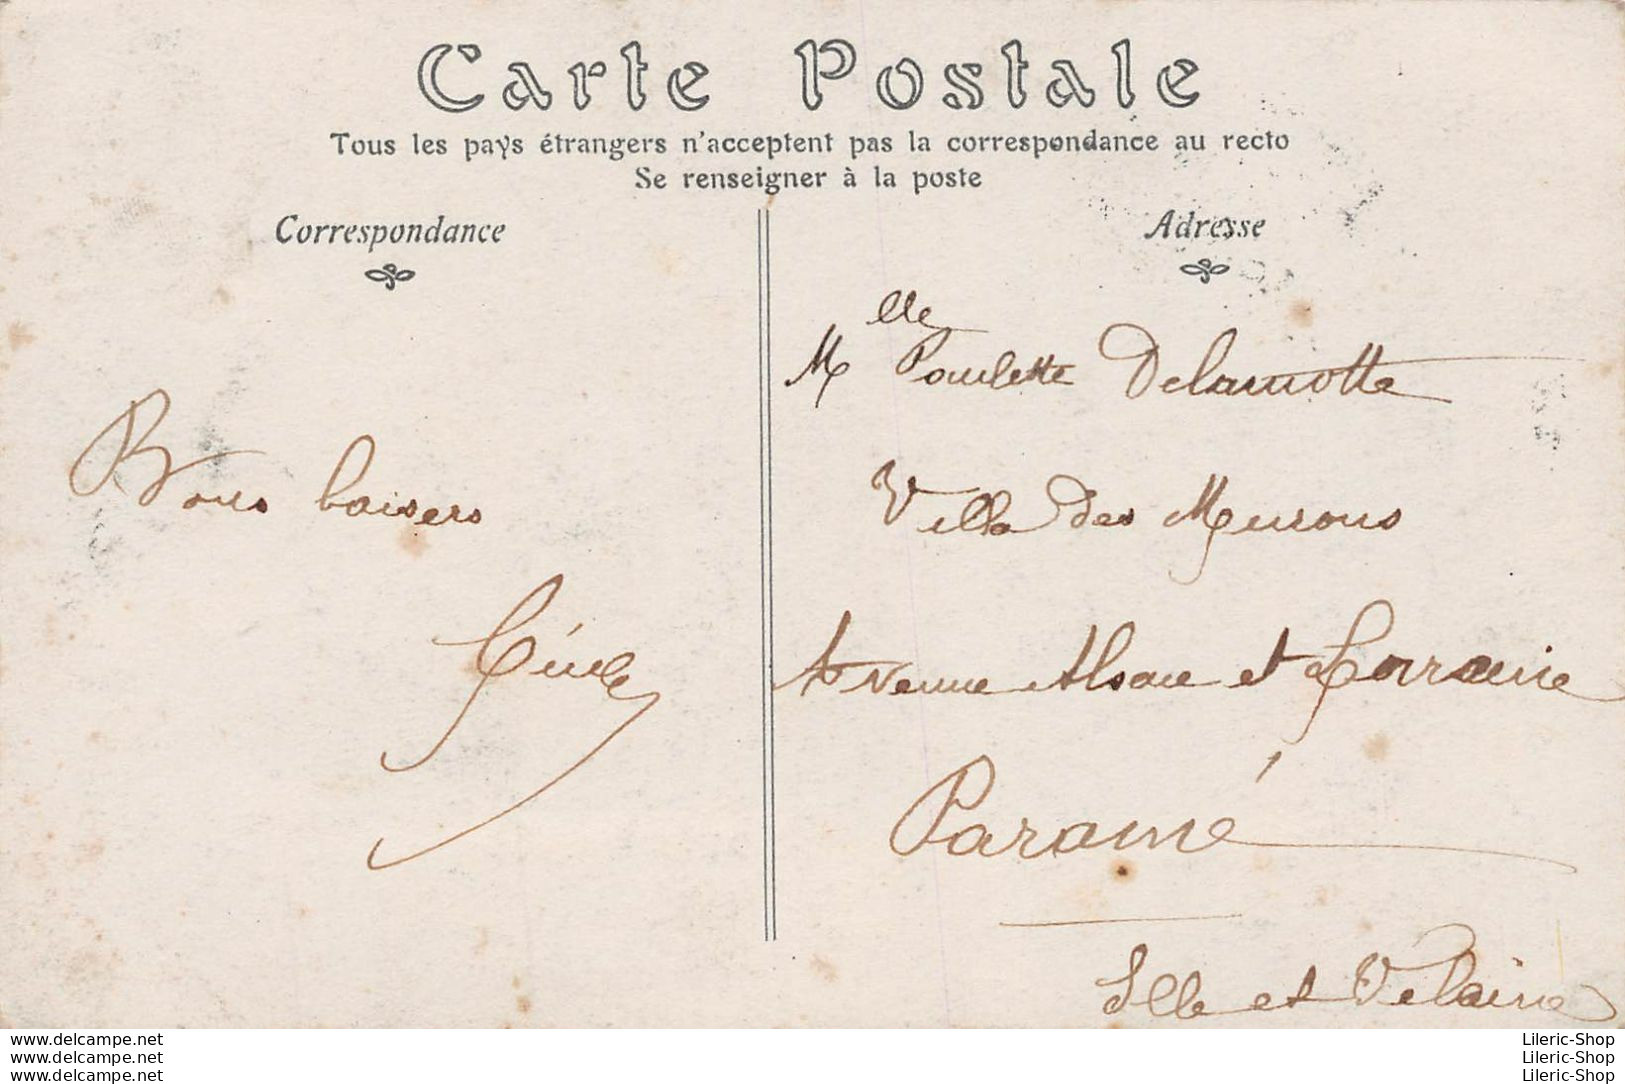 Carte Postale
Tous les pays étrangers n'acceptent pas la correspondance au recto
Se renseigner à la poste
Correspondance
Adresse
Bons baisers
Mlle Paulette Delamotte
Villa des
Avenue Alsace et Lorraine
Paramé
Ille et Vilaine
www.delcampe.net
www.delcampe.net
www.delcampe.net
Lileric-Shop
Lileric-Shop
Lileric-Shop